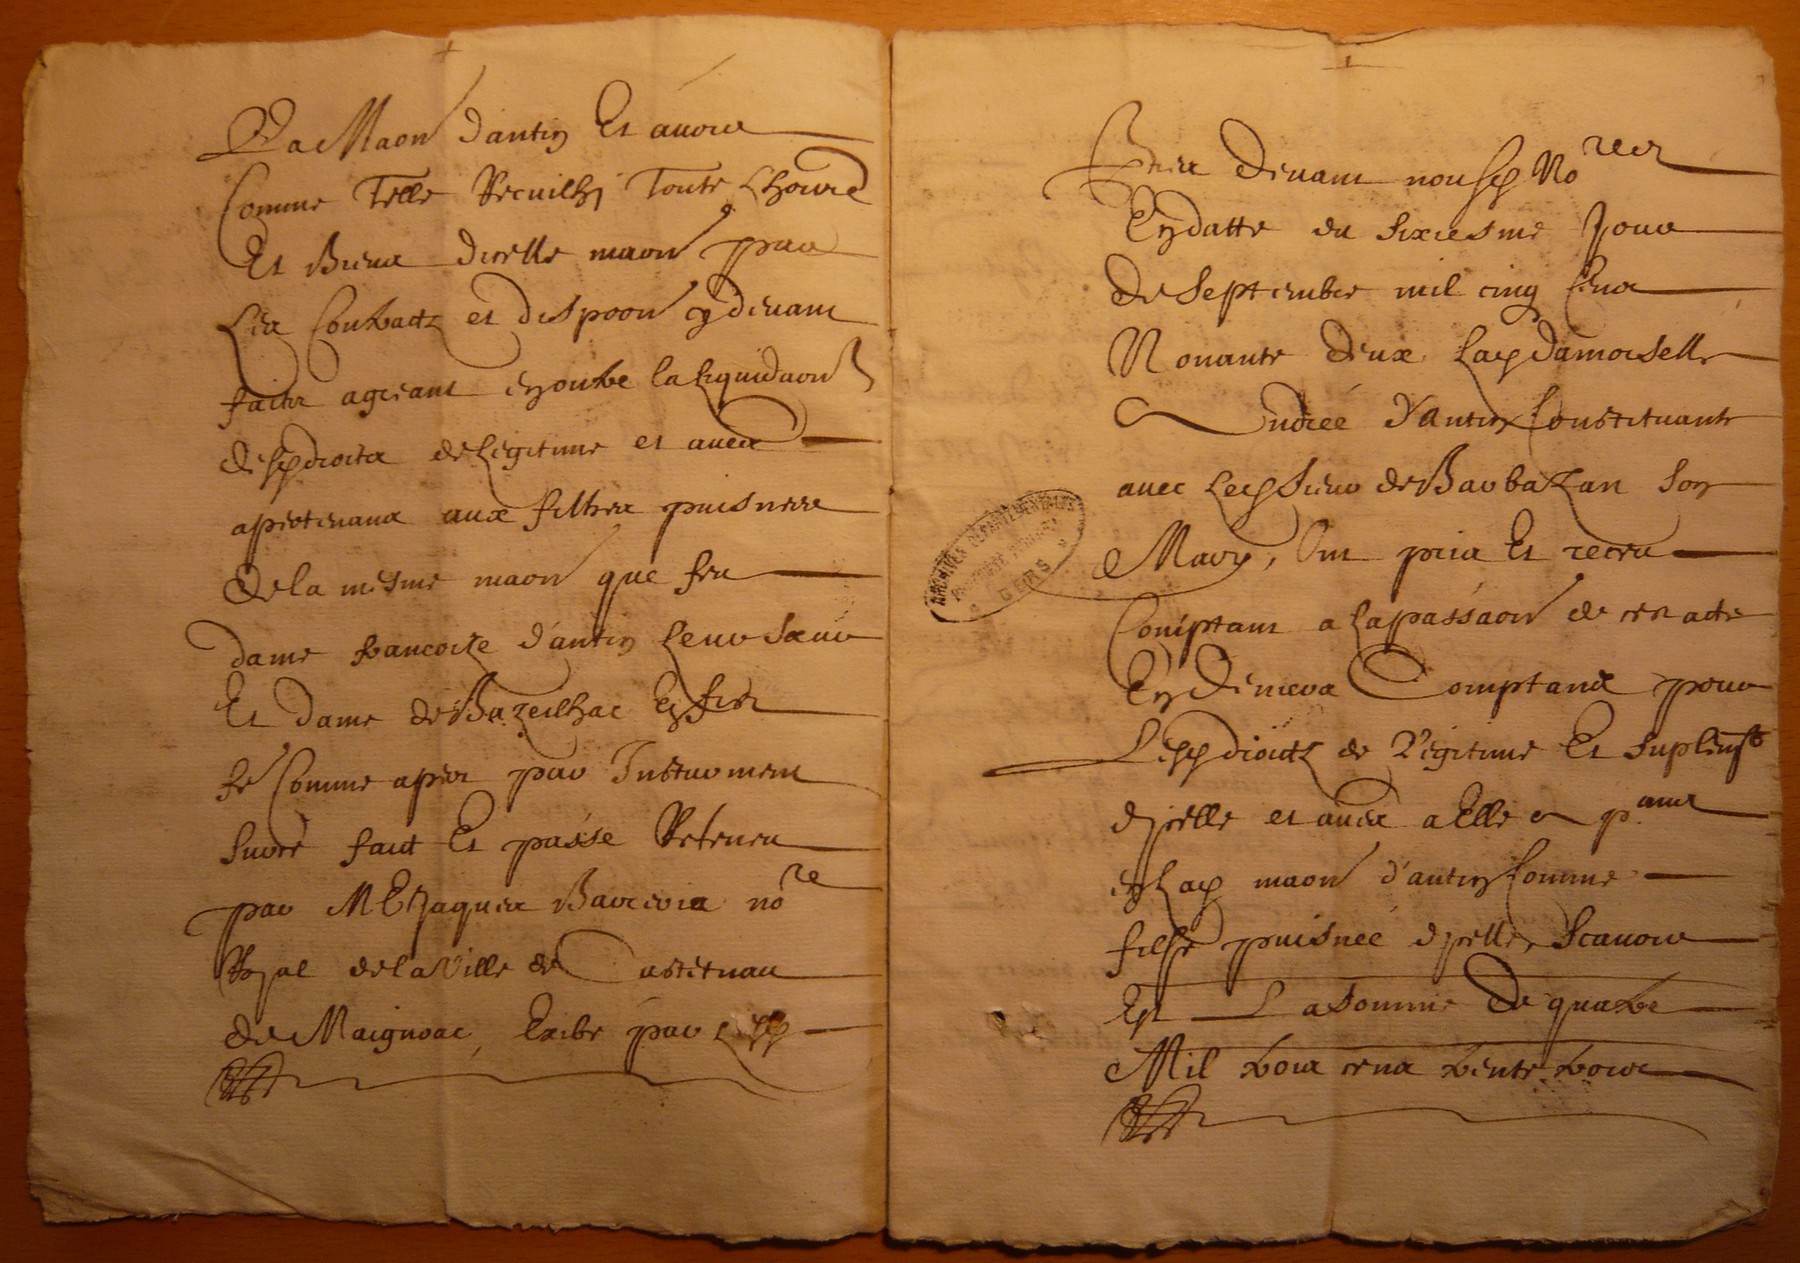 La Maon d'antin Et avoir
Comme Telle Recuilhi Toute Lhoirie
Et Biens dicelle maon par
Les Contractz et dispoon cy devant
faites ageant en outre la liquidaon
desd droitz de Legitime et autres
apertenans aux filhes puisnées
de la mesme maon que feu
dame francoise d'antin leur sœur
Et dame de Bazeilhac En fit
fé Comme apert par Instrument
Sur ce fait Et passé Retenu
par Me Jaques Barrere nore
Royal de la Ville de Castetnau
de Maignoac, Exibé par
devant nousd Nores
En datte du sixiesme Jour
de Septembre mil cinq cens
Nonante deux Lad damoiselle
Andrée d'Antin Constituante
avec Led sieur de Barbazan son
Mary, Ont pris Et receu
Comptant a la passaon de cest acte
En Deniers Comptans pour
Lesd droitz de Legitime Et suplement
dicelle et autres a Elle apans
en Lad maon d'antin Comme
filhe puisnée dicelle, Scavoir
Est La Somme De quatre
Mil trois cens trente trois
ARCHIVES DEPARTEMENTALES
GERS